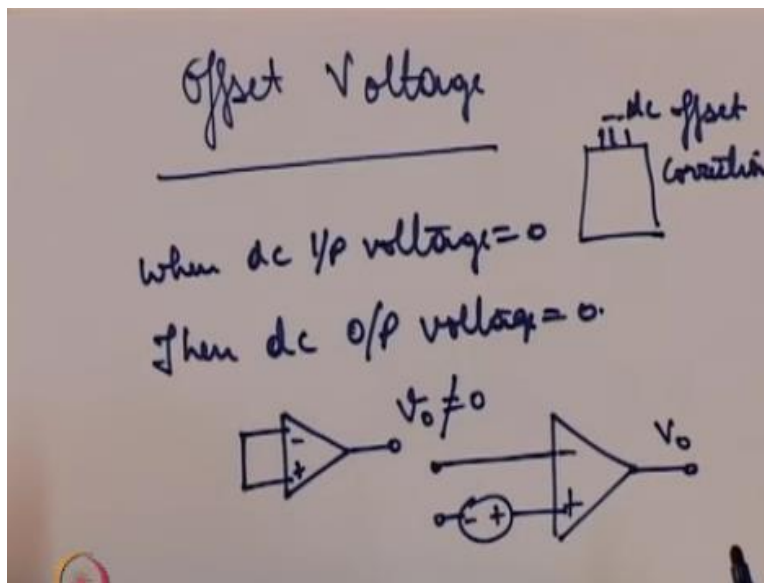 Offset Voltage
dc offset
correction
When dc I/P voltage = 0
Then dc O/P voltage = 0.
- + v₀ ≠ 0
- + - + V₀